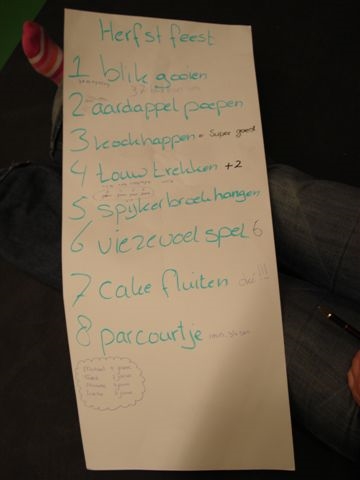 Herfst feest
1 blik gooien
2 aardappel poepen
3 koekhappen = super goed
4 touw trekken +2
5 spijkerbroek hangen
6 viezevoel spel 6
7 cake fluiten oké!!!
8 parcourtje